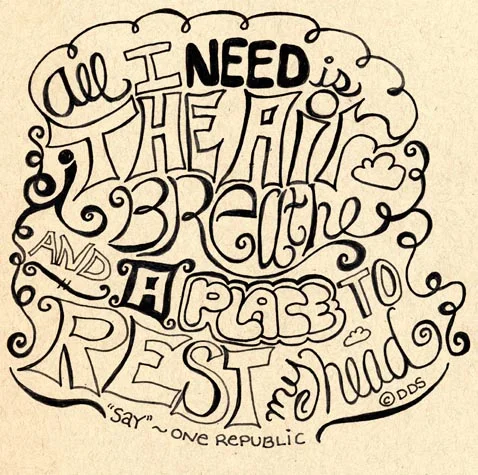 all I NEED is
THE AiR
I BReathe
AND A PLACE TO
REST my head
©DDS
"SAY" ~ ONE REPUBLIC